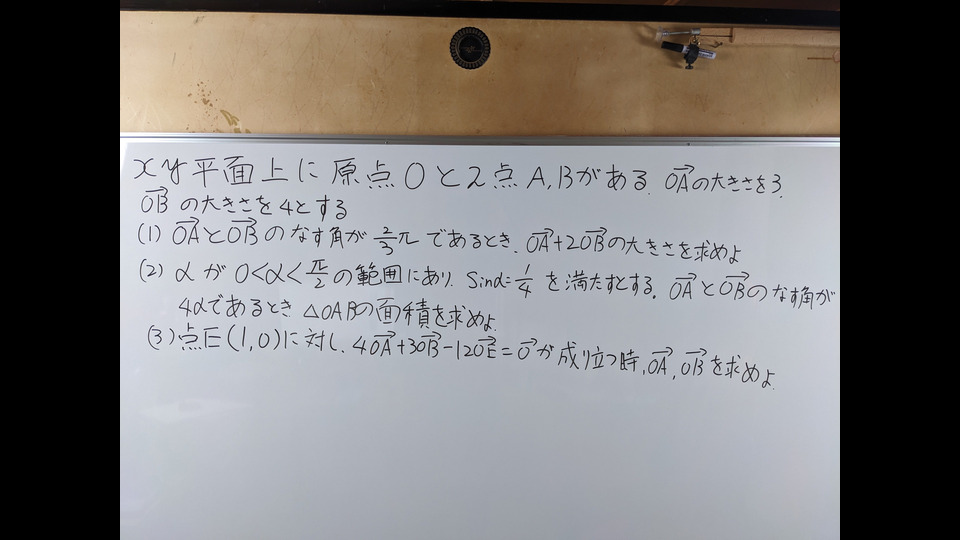 xy平面上に原点Oと2点A,Bがある. OA→の大きさを3.
OB→の大きさを4とする
(1) OA→とOB→のなす角が2/3πであるとき. OA→+2OB→の大きさを求めよ
(2) αが0<α<π/2の範囲にあり. Sinα=1/4を満たすとする. OA→とOB→のなす角が
4αであるとき △OABの面積を求めよ.
(3) 点E(1,0)に対し. 4OA→+3OB→-12OE→=0→が成り立つ時, OA→, OB→を求めよ.